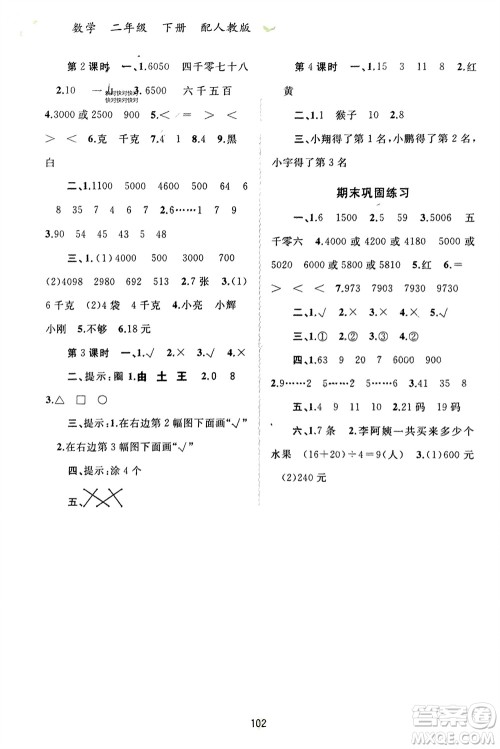 数学 二年级 下册 配人教版
第2课时 一、1.6050 四千零七十八
2.10 一 3.6500 六千五百
快对快对快对
4.3000 或 2500 900 5.> < >
< > 6.克 千克 7.4 1 8.√ 9.黑
白
二、1.1100 4500 15 700 54
6 8 35 7 4 6 2.6……7
3.90
三、1.(1)4000 500 3000 700
(2)4098 2980 692 890 2.(1)6
千克 (2)4袋 4.小亮 小辉
小刚 5.不够 6.18元
第3课时 一、1.√ 2.× 3.×
二、提示:圈 1.由 土 王 2.0 8
3.△ □ ○
三、提示:1.在右边第2幅图下面画“√”
2.在右边第3幅图下面画“√”
四、提示:涂4个
五、
第4课时 一、1.15 3 11 8 2.红
黄
二、1.1 猴子 10 2.8
三、小翔得了第1名,小鹏得了第2名,
小宇得了第3名
期末巩固练习
一、1.6 1500 2.> < 3.5006 五
千零六 4.4000 或 4200 4150 或
5020 6000 或 5810 5.红 6.= <
> < < 7.3540 7915 9730
二、1.√ 2.× 3.× 4.× 5.√
三、1.① 2.① 3.② 4.①
四、1.63 9 32 6 1000 6000
2.9……2
五、1.× √ √ × 2.21码 20码
六、1.7条 2.李阿姨一共买来多少个
水果 (16+20)÷4=9(人) 3.(1)600元
(2)240元
102